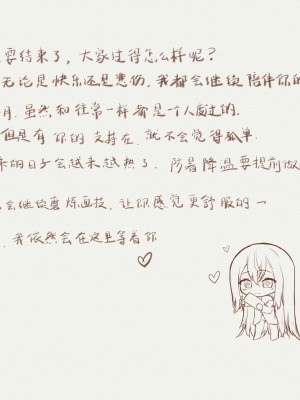 要结束了，大家过得怎么样呢？
无论是快乐还是悲伤，我都会继续陪伴你的
月，虽然和往常一样都是一个人度过的，
但是有你的支持在，就不会觉得孤单
来的日子会越来越热了，防暑降温要提前做
会继续磨炼画技，让你感觉更舒服的一
，我依然会在这里等着你